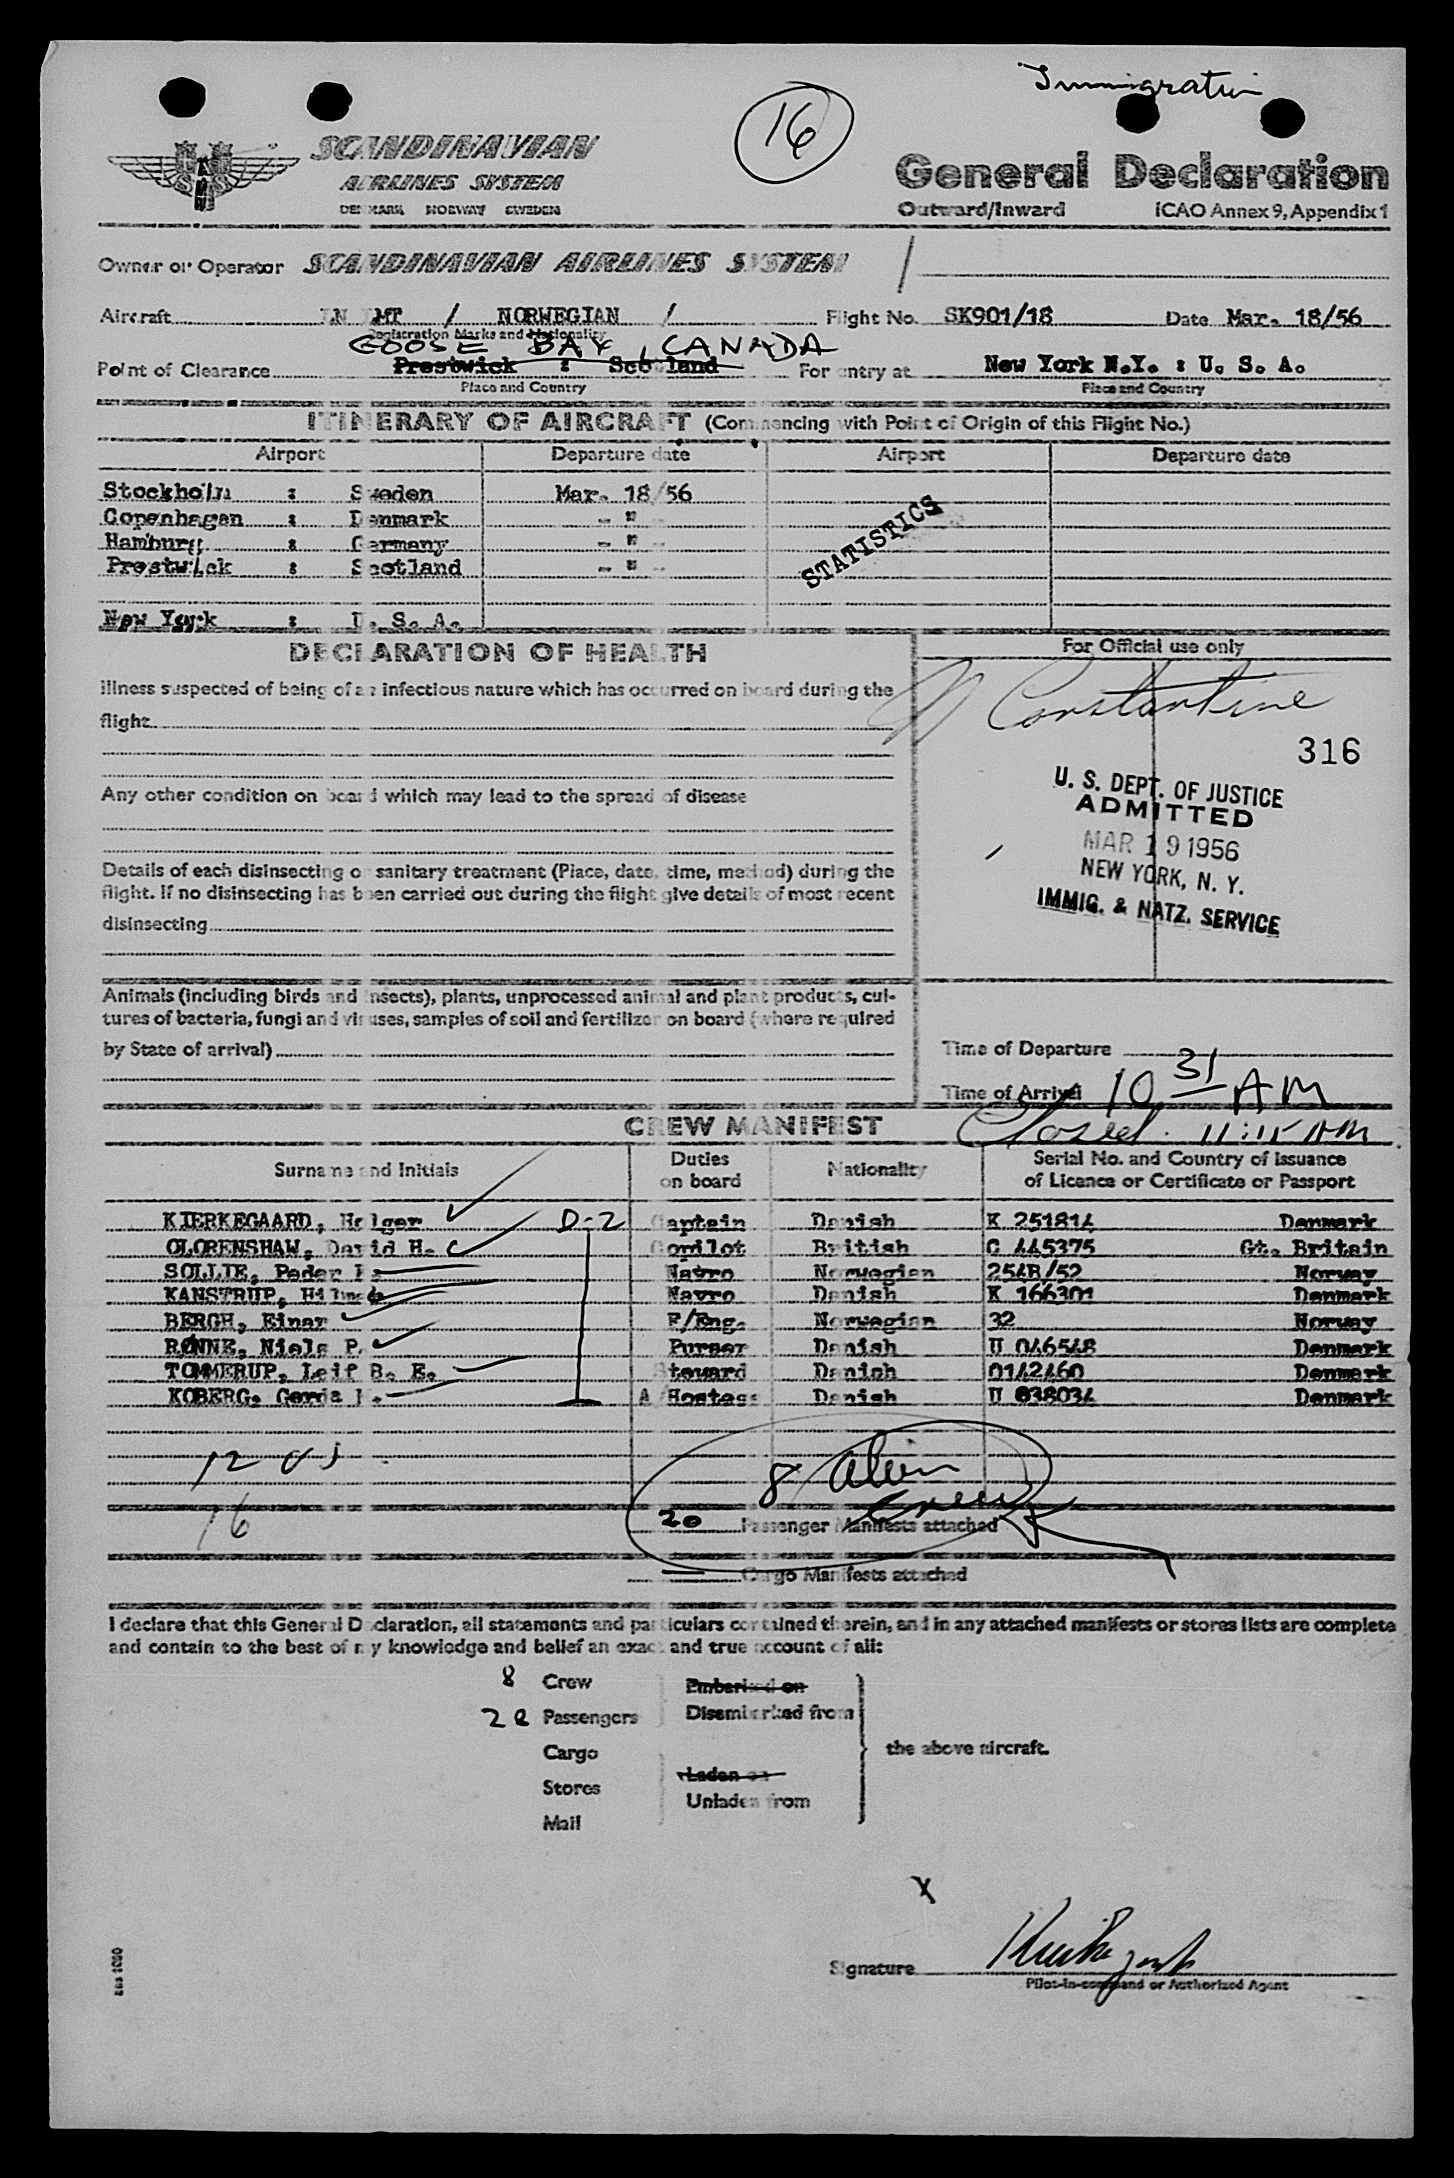 Immigration
16
SCANDINAVIAN
AIRLINES SYSTEM
DENMARK NORWAY SWEDEN
General Declaration
Outward/Inward ICAO Annex 9, Appendix 1
Owner or Operator SCANDINAVIAN AIRLINES SYSTEM /
Aircraft / NORWEGIAN / Flight No. SK901/18 Date Mar. 18/56
Registration Marks and Nationality
GOOSE BAY, CANADA
Point of Clearance Prestwick : Scotland For entry at New York N.Y. : U. S. A.
Place and Country Place and Country
ITINERARY OF AIRCRAFT (Commencing with Point of Origin of this Flight No.)
Airport Departure date Airport Departure date
Stockholm : Sweden Mar. 18/56
Copenhagen : Denmark - " -
Hamburg : Germany - " -
Prestwick : Scotland - " -
STATISTICS
New York : U. S. A.
DECLARATION OF HEALTH
For Official use only
Illness suspected of being of an infectious nature which has occurred on board during the
flight
Constantine
316
U. S. DEPT. OF JUSTICE
ADMITTED
MAR 19 1956
NEW YORK, N. Y.
IMMIG. & NATZ. SERVICE
Any other condition on board which may lead to the spread of disease
Details of each disinsecting or sanitary treatment (Place, date, time, method) during the
flight. If no disinsecting has been carried out during the flight give details of most recent
disinsecting
Animals (including birds and insects), plants, unprocessed animal and plant products, cul-
tures of bacteria, fungi and viruses, samples of soil and fertilizer on board (where required
by State of arrival)
Time of Departure
Time of Arrival 10 31 AM
Closed. 11:15 AM
CREW MANIFEST
Surname and Initials Duties on board Nationality Serial No. and Country of Issuance of Licence or Certificate or Passport
KIERKEGAARD, Holger D-2 Captain Danish K 251814 Denmark
OLORENSHAW, David H. Copilot British C 445375 Gt. Britain
SOLLIE, Peder Navro Norwegian 254B/52 Norway
KANSTRUP, Hilmer Navro Danish K 166301 Denmark
BERGH, Einar F/Eng. Norwegian 32 Norway
RØNNE, Niels P. Purser Danish U 046548 Denmark
TOMMERUP, Leif B. E. Steward Danish 0142460 Denmark
KOBERG, Gerda A/Hostess Danish U 038034 Denmark
8 Alien
Crew
16
20 Passenger Manifests attached
Cargo Manifests attached
I declare that this General Declaration, all statements and particulars contained therein, and in any attached manifests or stores lists are complete
and contain to the best of my knowledge and belief an exact and true account of all:
8 Crew Embarked on
Passengers Disembarked from
Cargo the above aircraft.
Stores Laden on
Unladen from
Mail
X
Signature Kierkegaard
Pilot-in-command or Authorized Agent